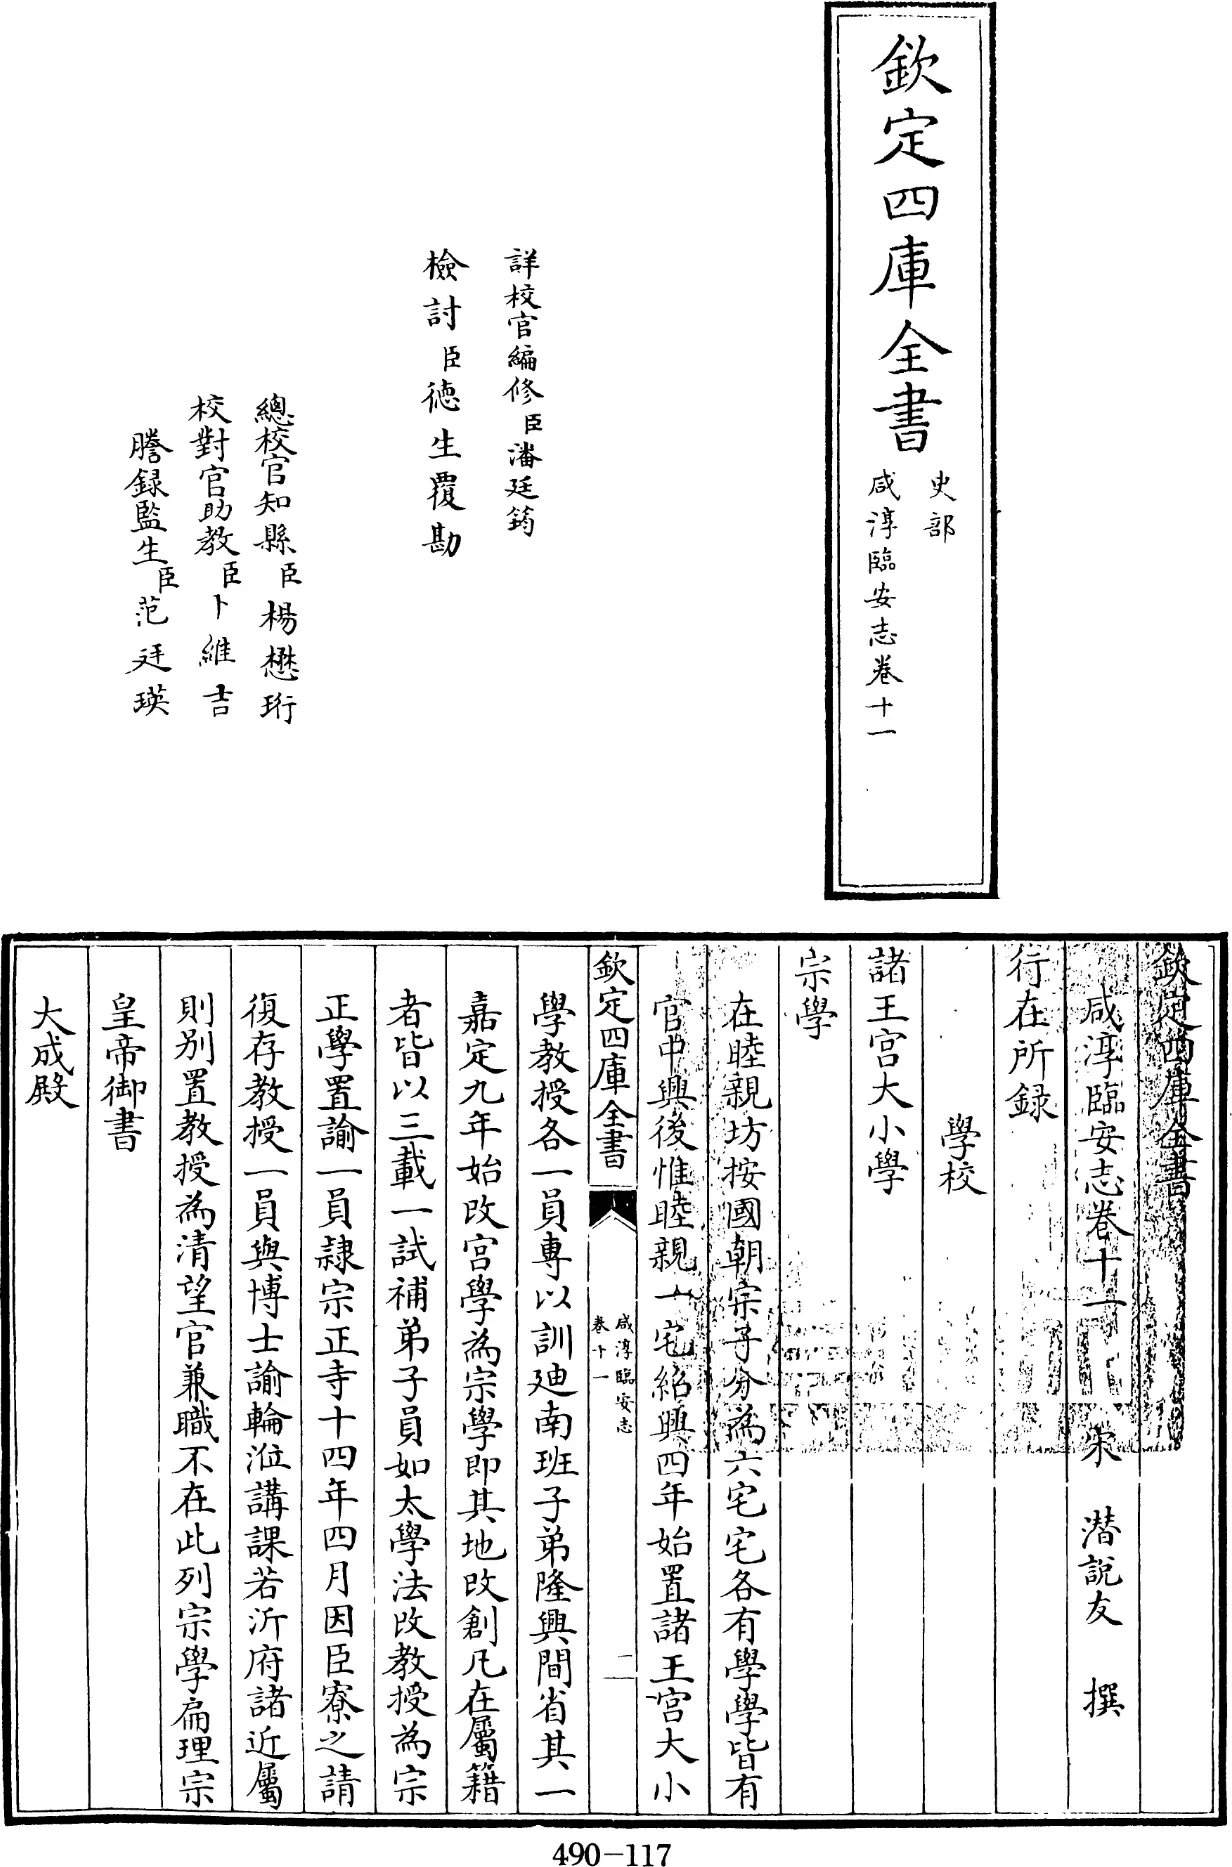 欽定四庫全書
史部
咸淳臨安志卷十一
詳校官編修臣潘廷筠
檢討臣德生覆勘
總校官知縣臣楊懋珩
校對官助教臣卜維吉
謄録監生臣范廷瑛
欽定四庫全書
咸淳臨安志卷十一 宋 潛說友 撰
行在所録
學校
諸王宫大小學
宗學
在睦親坊按國朝宗子分為六宅宅各有學學皆有
官中興後惟睦親一宅紹興四年始置諸王宫大小
欽定四庫全書
咸淳臨安志
卷十一
二
學教授各一員專以訓廸南班子弟隆興間省其一
嘉定九年始改宫學為宗學即其地改創凡在屬籍
者皆以三載一試補弟子員如太學法改教授為宗
正學置諭一員隷宗正寺十四年四月因臣寮之請
復存教授一員與博士諭輪涖講課若沂府諸近屬
則别置教授為清望官兼職不在此列宗學扁理宗
皇帝御書
大成殿
490-117